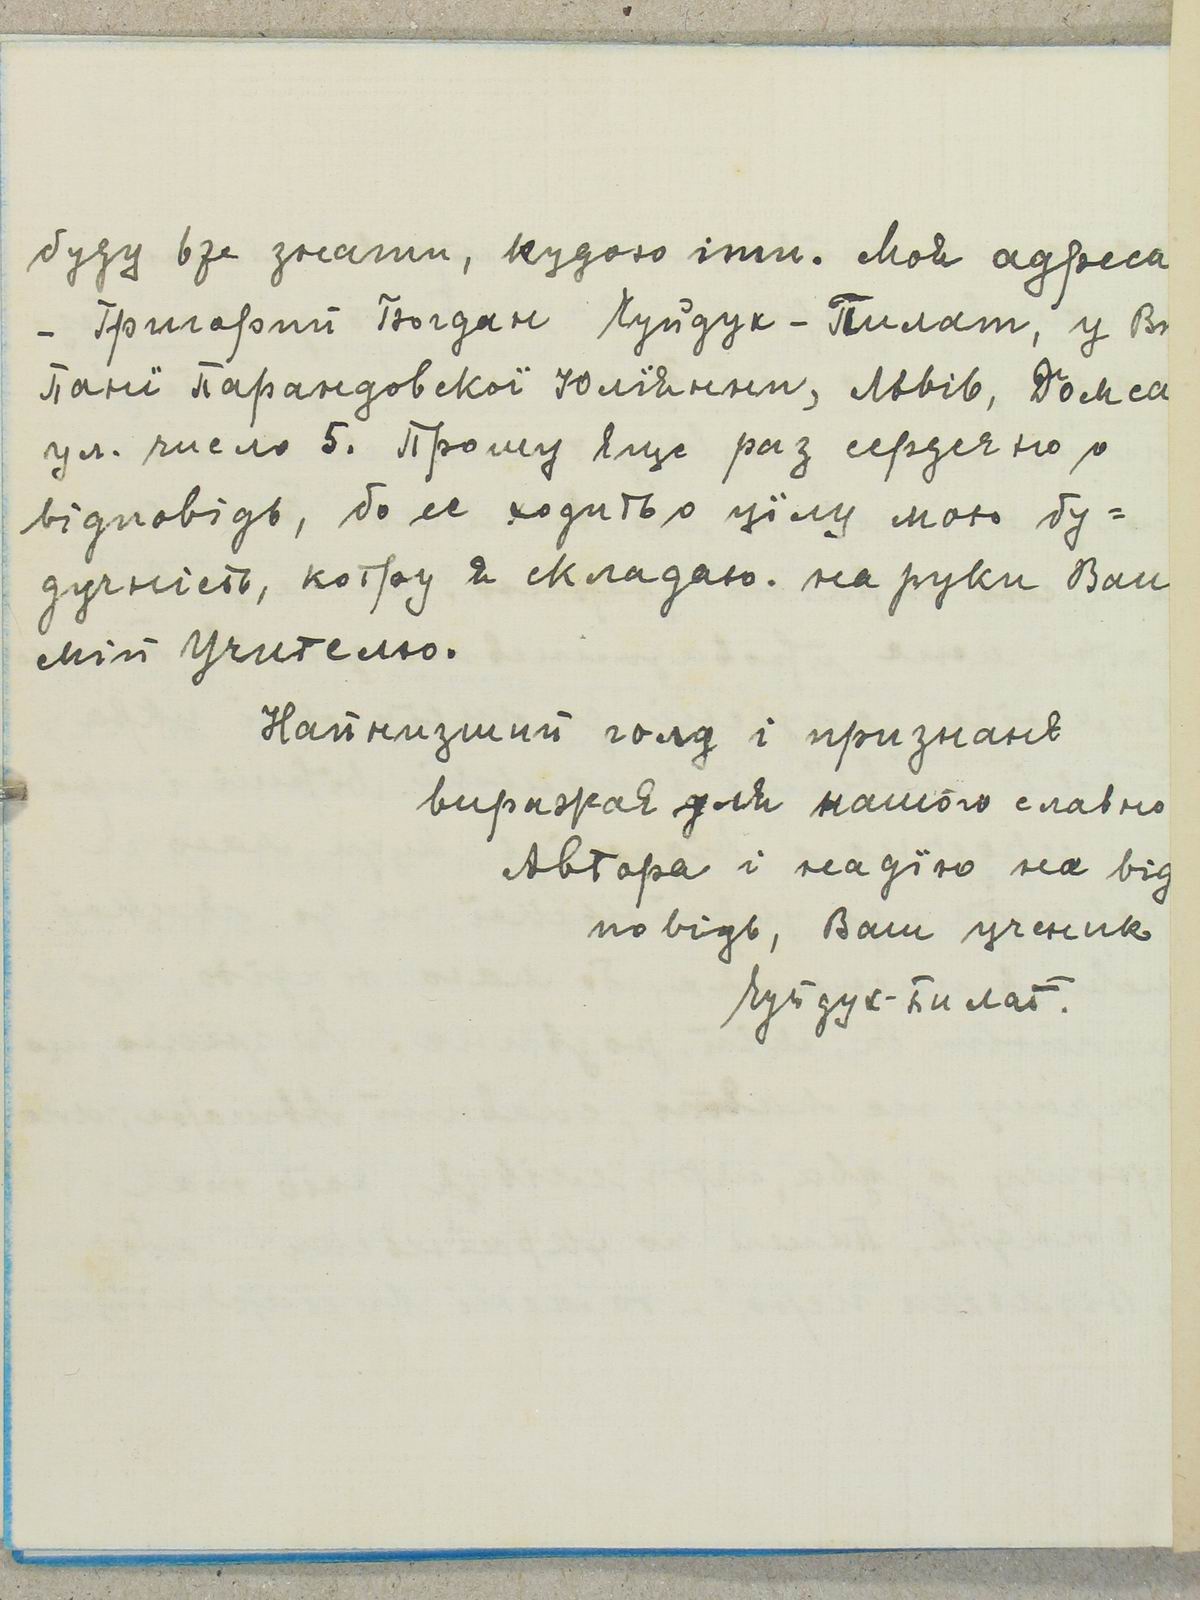 буду вже знати, кудою іти. Моя адреса
- Григорий Богдан Чуйдук-Пилат, у Вп
Панї Парандовскої Юлїянни, Львів, Домса
ул. число 5. Прошу єще раз сердечно о
відповідь, бо се ходить о цїлу мою бу=
дучність, котру я складаю. на руки Ваш
мій Учителю.
Найнизший голд і признанє
виражаю для нашого славно
Автора і надїю на від
повідь, Ваш ученик
Чуйдук-Пилат.